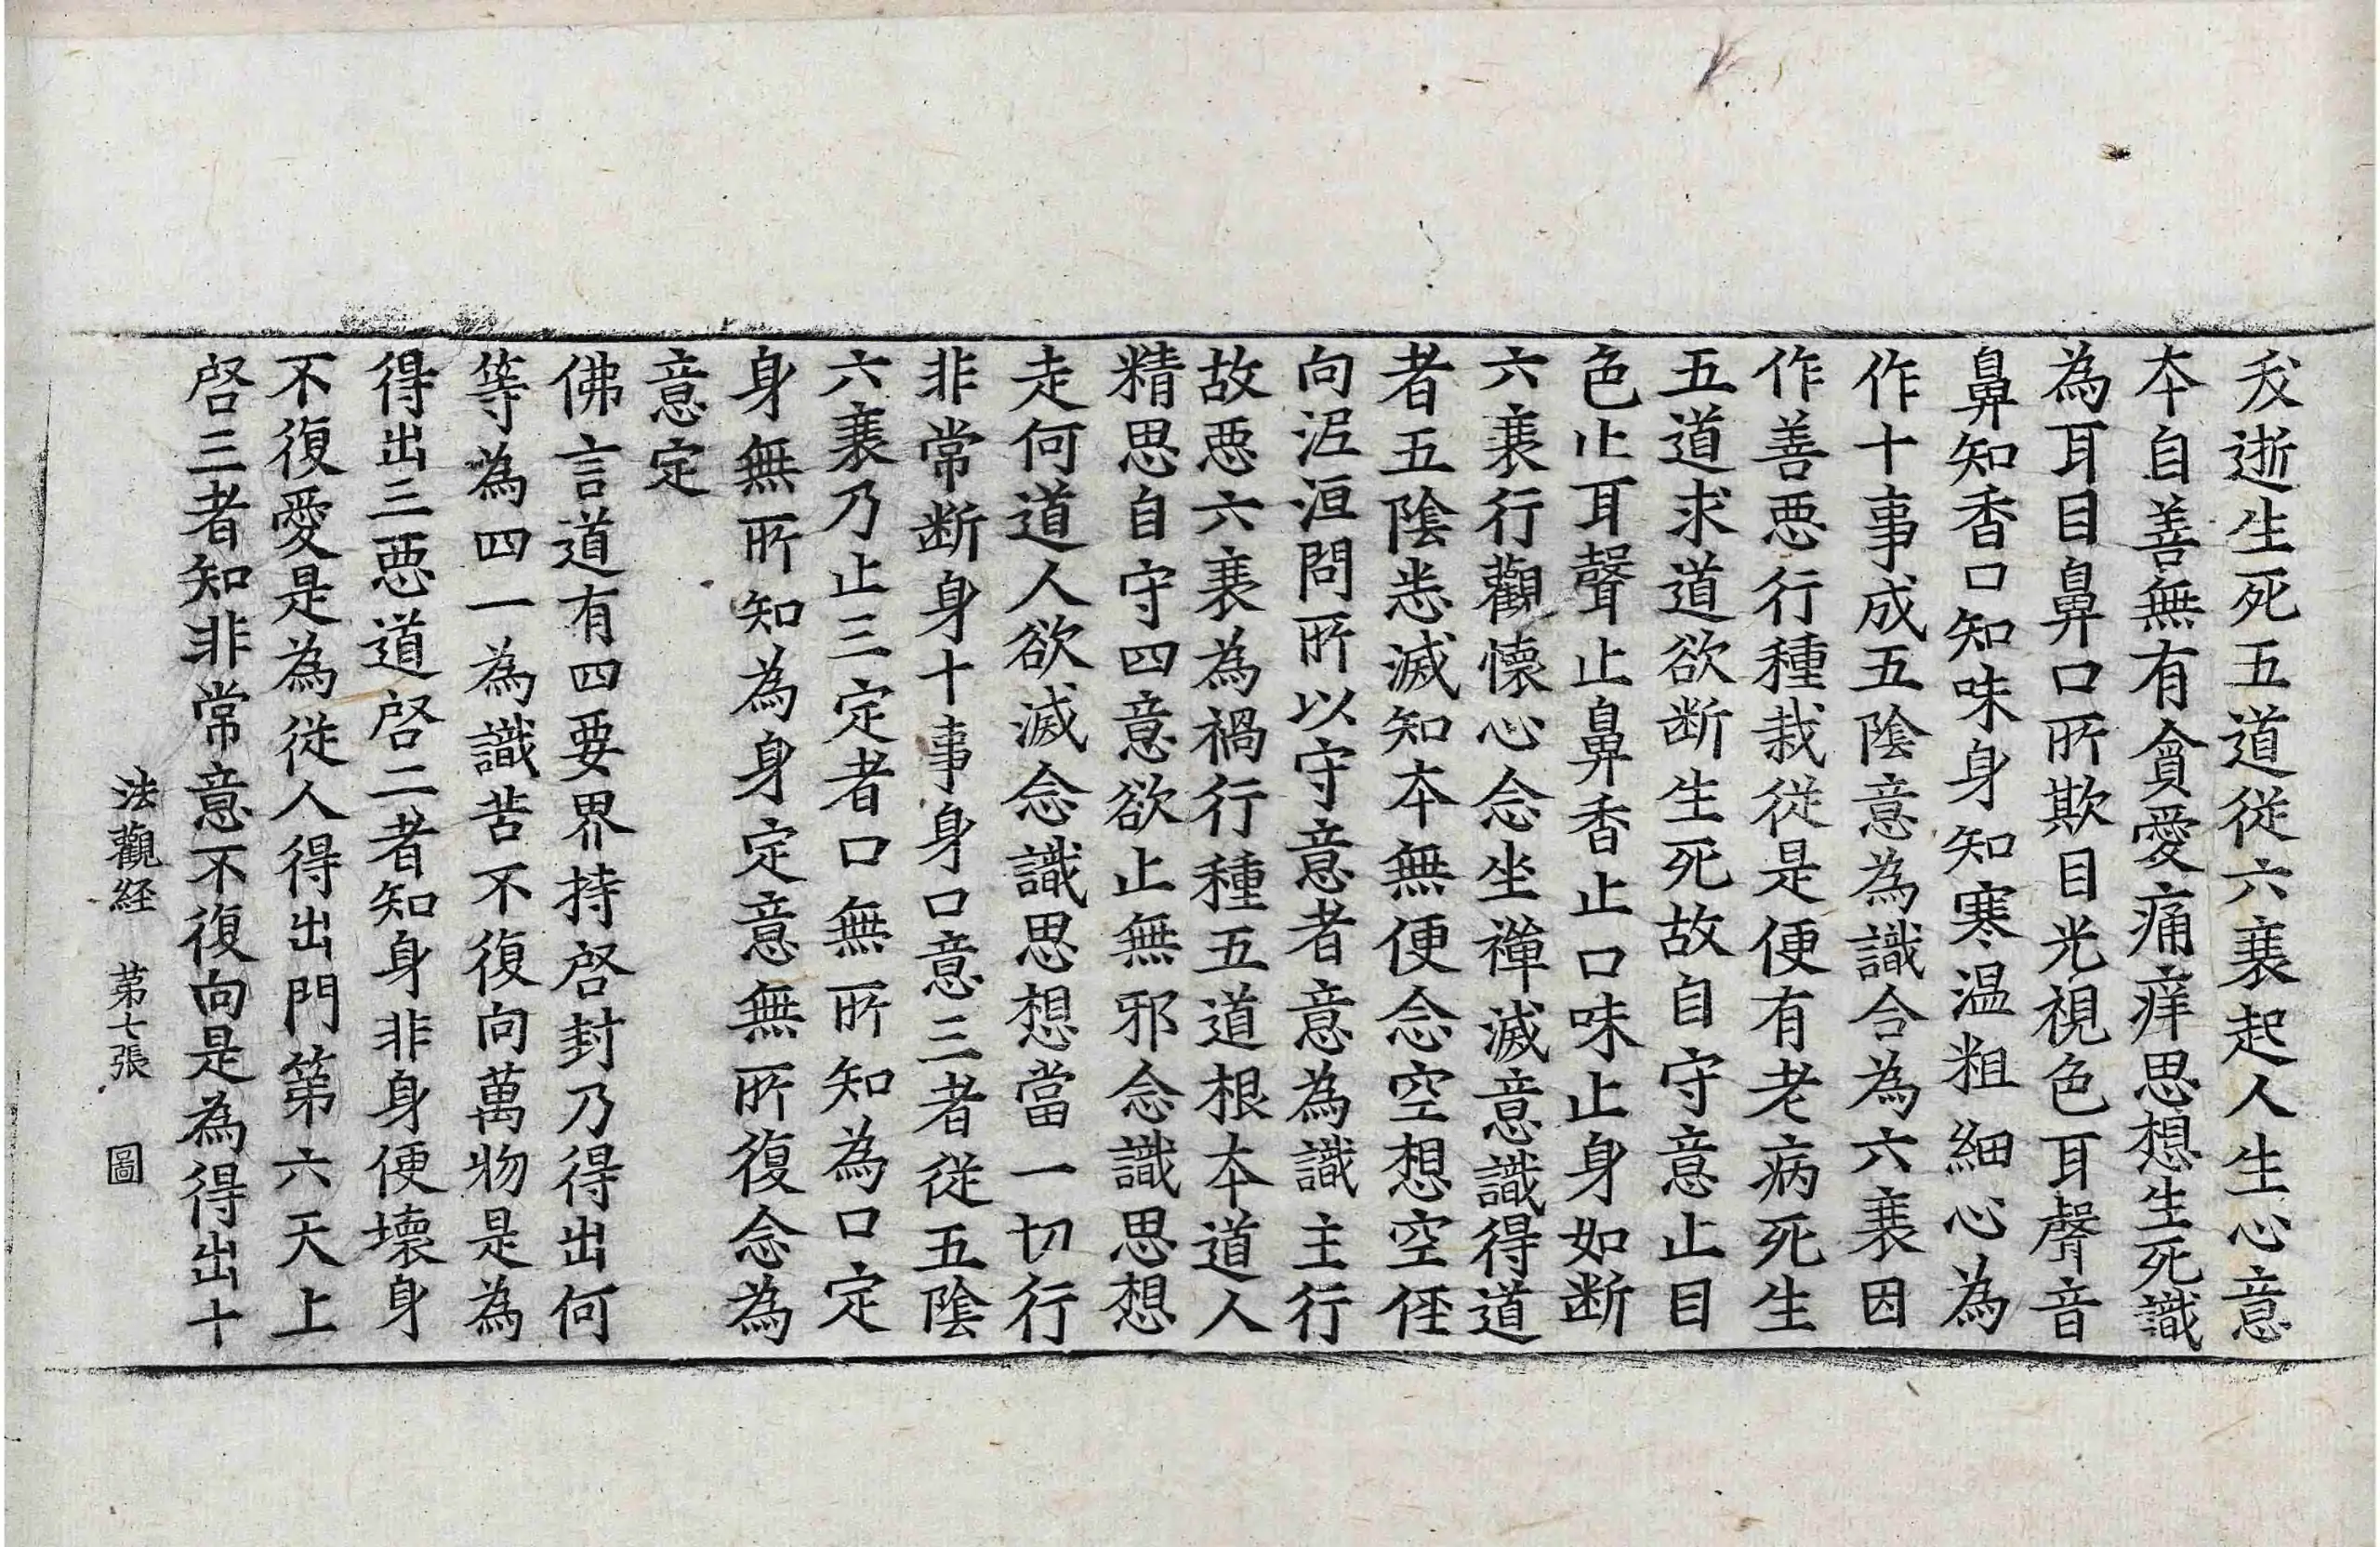 癹逝生死五道從六衰起人生心意
本自善無有貪愛痛痒思想生死識
為耳目鼻口所欺目光視色耳聲音
鼻知香口知味身知寒温粗細心為
作十事成五陰意為識合為六衰因
作善惡行種栽從是便有老病死生
五道求道欲斷生死故自守意止目
色止耳聲止鼻香止口味止身如斷
六衰行觀懷心念坐禪滅意識得道
者五陰悉滅知本無便念空想空俓
向泥洹問所以守意者意為識主行
故惡六衰為禍行種五道根本道人
精思自守四意欲止無邪念識思想
走何道人欲滅念識思想當一切行
非常斷身十事身口意三者從五陰
六衰乃止三定者口無所知為口定
身無所知為身定意無所復念為
意定
佛言道有四要界持啓封乃得出何
等為四一為識苦不復向萬物是為
得出三惡道啓二者知身非身便壞身
不復愛是為從人得出門第六天上
啓三者知非常意不復向是為得出十
法觀経 苐七張 圖